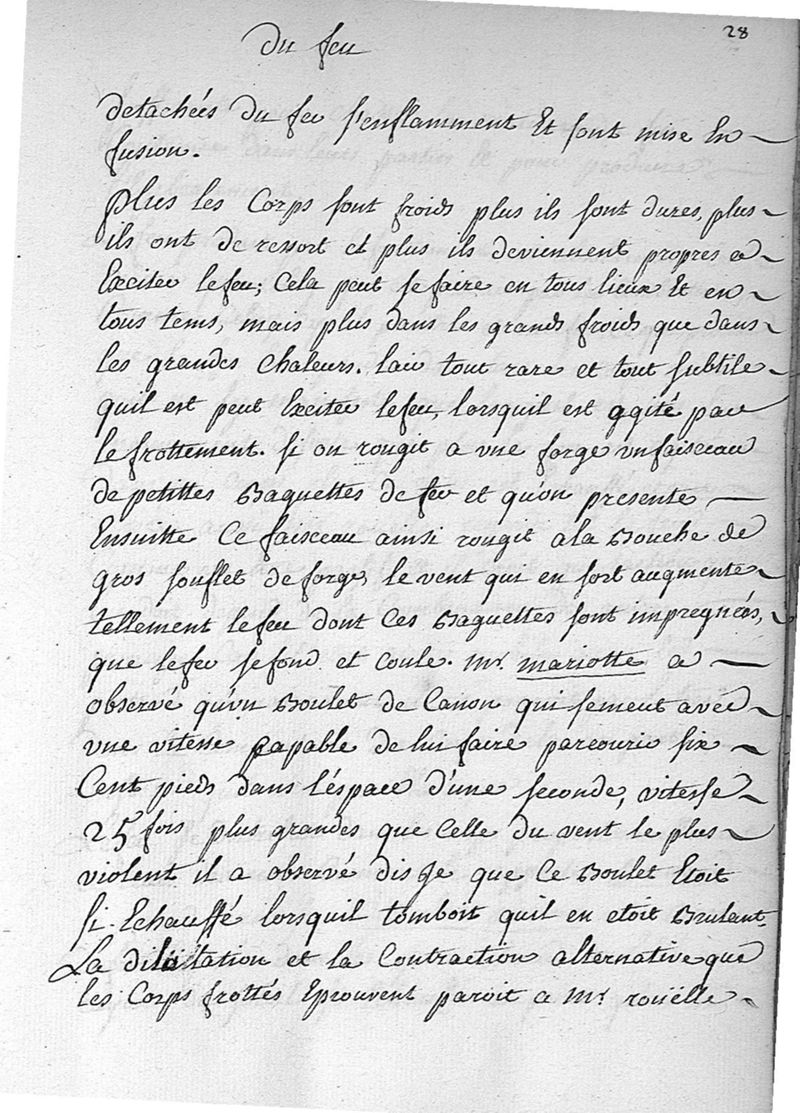 28
Du feu
detachées du feu s'enflamment Et sont mise En
fusion.
plus les Corps sont froids plus ils sont dures, plus
ils ont de ressort et plus ils deviennent propres a
Exciter le feu; Cela peut se faire en tous lieux Et en
tous tems, mais plus dans les grands froids que dans
les grandes Chaleurs. lair tout rare et tout subtile
quil est peut Exciter le feu, lorsquil est agité par
le frottement. si on rougit a vne forge vn faisceau
de petittes Baguettes de fer et qu'on presente
Ensuitte Ce faisceau ainsi rougit a la Bouche de
gros souflet de forge, le vent qui en sort augmente
tellement le feu dont Ces Baguettes sont impregnées,
que le feu se fond et coule. Mr. mariotte a
observé qu'un Boulet de Canon qui se meut avec
vne vitesse capable de lui faire parcourir six
Cent pieds dans l'éspace d'une seconde, vitesse
25 fois plus grandes que Celle du vent le plus
violent il a observé dis je que Ce Boulet Etoit
si Echauffé lorsquil tomboit quil en etoit Brulant.
La dilatation et la Contraction alternative que
les Corps frottés Eprouvent paroit a Mr. roüelle